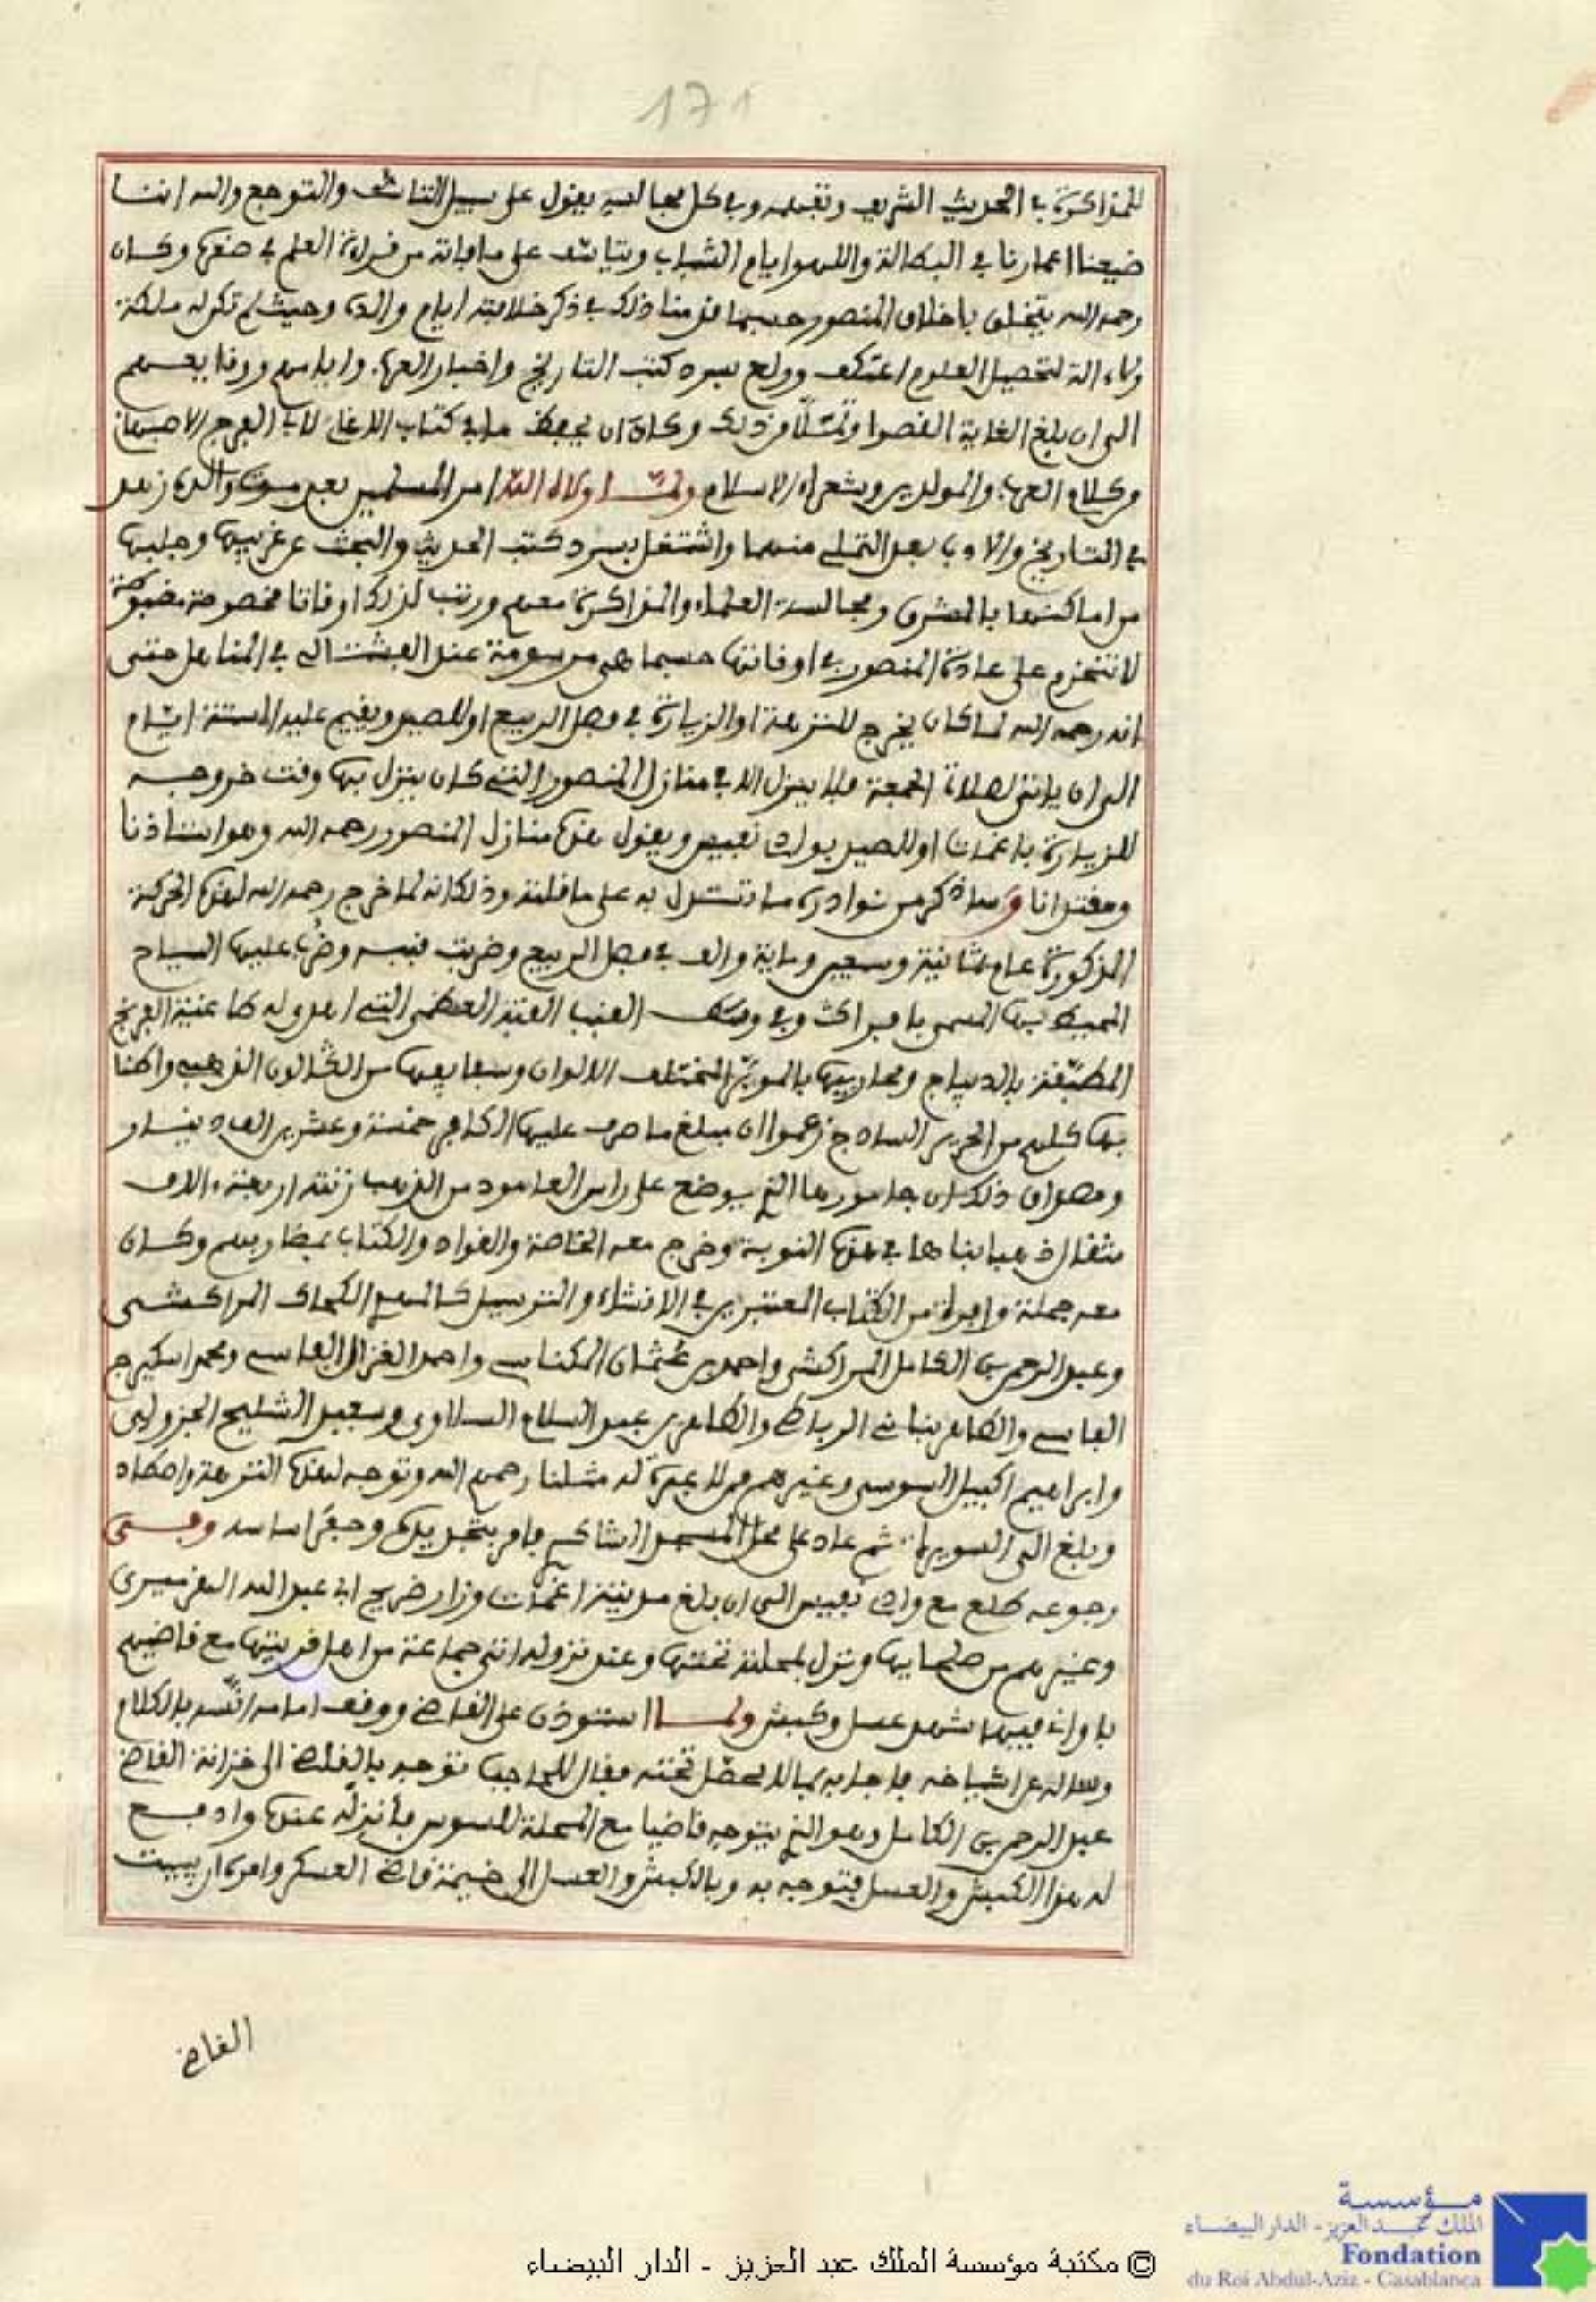 171
للمذاكرة في الحديث الشريف وتفهمه وفي كل مجالسه يقول على سبيل التأسف والتوجع والله اننا
ضيعنا اعمارنا في البطالة واللهو ايام الشباب ويتأسف على ما فاته من قراءة العلم في صغره وكان
رحمه الله يتخلق باخلاق المنصور حسبما قدمنا ذلك في ذكر خلافته ايام والده وحيث لم تكن له ملكة
ولاء الة لتحصيل العلوم اعتكف وولع بسرد كتب التاريخ واخبار العرب وايامهم ووقايعهم
الى ان بلغ الغاية القصوا وتملّا من ذلك وكاد ان يحفظ ما في كتاب الاغاني لابي الفرج الاصبهاني
من كلام العرب والمولدين وشعراء الاسلام ولما ولاه الله امر المسلمين بعد موت والده زهد
في التاريخ والادب بعد التملي منهما واشتغل بسرد كتب الحديث والبحث عن غريبها وجلبها
من اماكنها بالمشرق ومجالسة العلماء والمذاكرة معهم ورتب لذلك اوقاتا مخصوصة مضبوطة
لا تنخرم على عادة المنصور في اوقاتها حسبما هي مرسومة عند الفشتالي في المناهل حتى
انه رحمه الله لما كان يخرج للنزهة او الزيارة في فصل الربيع او للصيد ويقيم عليه الستة ايام
الى ان ياتي لصلاة الجمعة فلا ينزل الا في منازل المنصور التي كان ينزل بها وقت خروجه
للزيارة باغمات او للصيد بواد نفيس ويقول هذه منازل المنصور رحمه الله وهو استاذنا
ومقتدانا وساذكر من نوادره ما تستدل به على ما قلته وذلك انه لما خرج رحمه الله لهذه الحركة
المذكورة عام ثمانية وسبعين وماية والف في فصل الربيع وضربت قببه وضرب عليها السياج
المحيط بها المسمى بافراك وفي وسط القباب القبة العظمى التي اهدى له طاغية الفرنج
المطبقة بالديباج ومحاربيها بالموبر المختلف الالوان وسفايفها من الطالون الذهبي واطنا
بها كلهم من الحرير الساذج زعموا ان مبلغ ما صرف عليها الطاغي خمسة وعشرين الف دينار
ومصداق ذلك ان جامورها الذي يوضع على راس العامود من الذهب زنته اربعة ءالاف
مثقال ذهبا بناها في هذه النوبة وخرج معه الخاصة والقواد والكتاب بمضاربهم وكان
معه جملة وافرة من الكتاب المعتبرين في الانشاء والترسيل كالمهدي الحكاك المراكشي
وعبد الرحمن الكامل المراكشي واحمد بن عثمان المكناسي واحمد الغزال الفاسي ومحمد سكيرج
الفاسي والطاهر بناني الرباطي والطاهر بن عبد السلام السلاوي وسعيد الشليح الجزولي
وابراهيم اكبيل السوسي وغيرهم ممن لا عبرة له مثلنا رحمهم الله وتوجه لهذه النزهة واصطاد
وبلغ الى السويرة ثم عاد على محل المسجد الشاكر فامر بتجديده وحفر اساسه وفي
رجوعه طلع مع واد نفيس الى ان بلغ مدينة اغمات وزار ضريح ابي عبد الله الهزميري
وغيرهم من صلحايها ونزل بمحلته تحتها وعند نزوله اتى جماعة من اهل قريتها مع قاضيهم
باواني فيها شهد عسل وكبش ولما استوذن على القاضي ووقف امامه انّسه بالكلام
وساله عن اشياخه فاجابه بما لا يحصل تحته فقال للحاجب توجه بالقاضي الى خزانة القاضي
عبد الرحمن الكامل وهو الذي يتوجه قاضيا مع المحلة للسوس فانزله عنده وادفع
له هذا الكبش والعسل فتوجه به وبالكبش والعسل الى خيمة قاضي العسكر وامره ان يبيت
القاضي
© مكتبة مؤسسة الملك عبد العزيز - الدار البيضاء
مؤسسة
الملك عبد العزيز - الدار البيضاء
Fondation
du Roi Abdul-Aziz - Casablanca